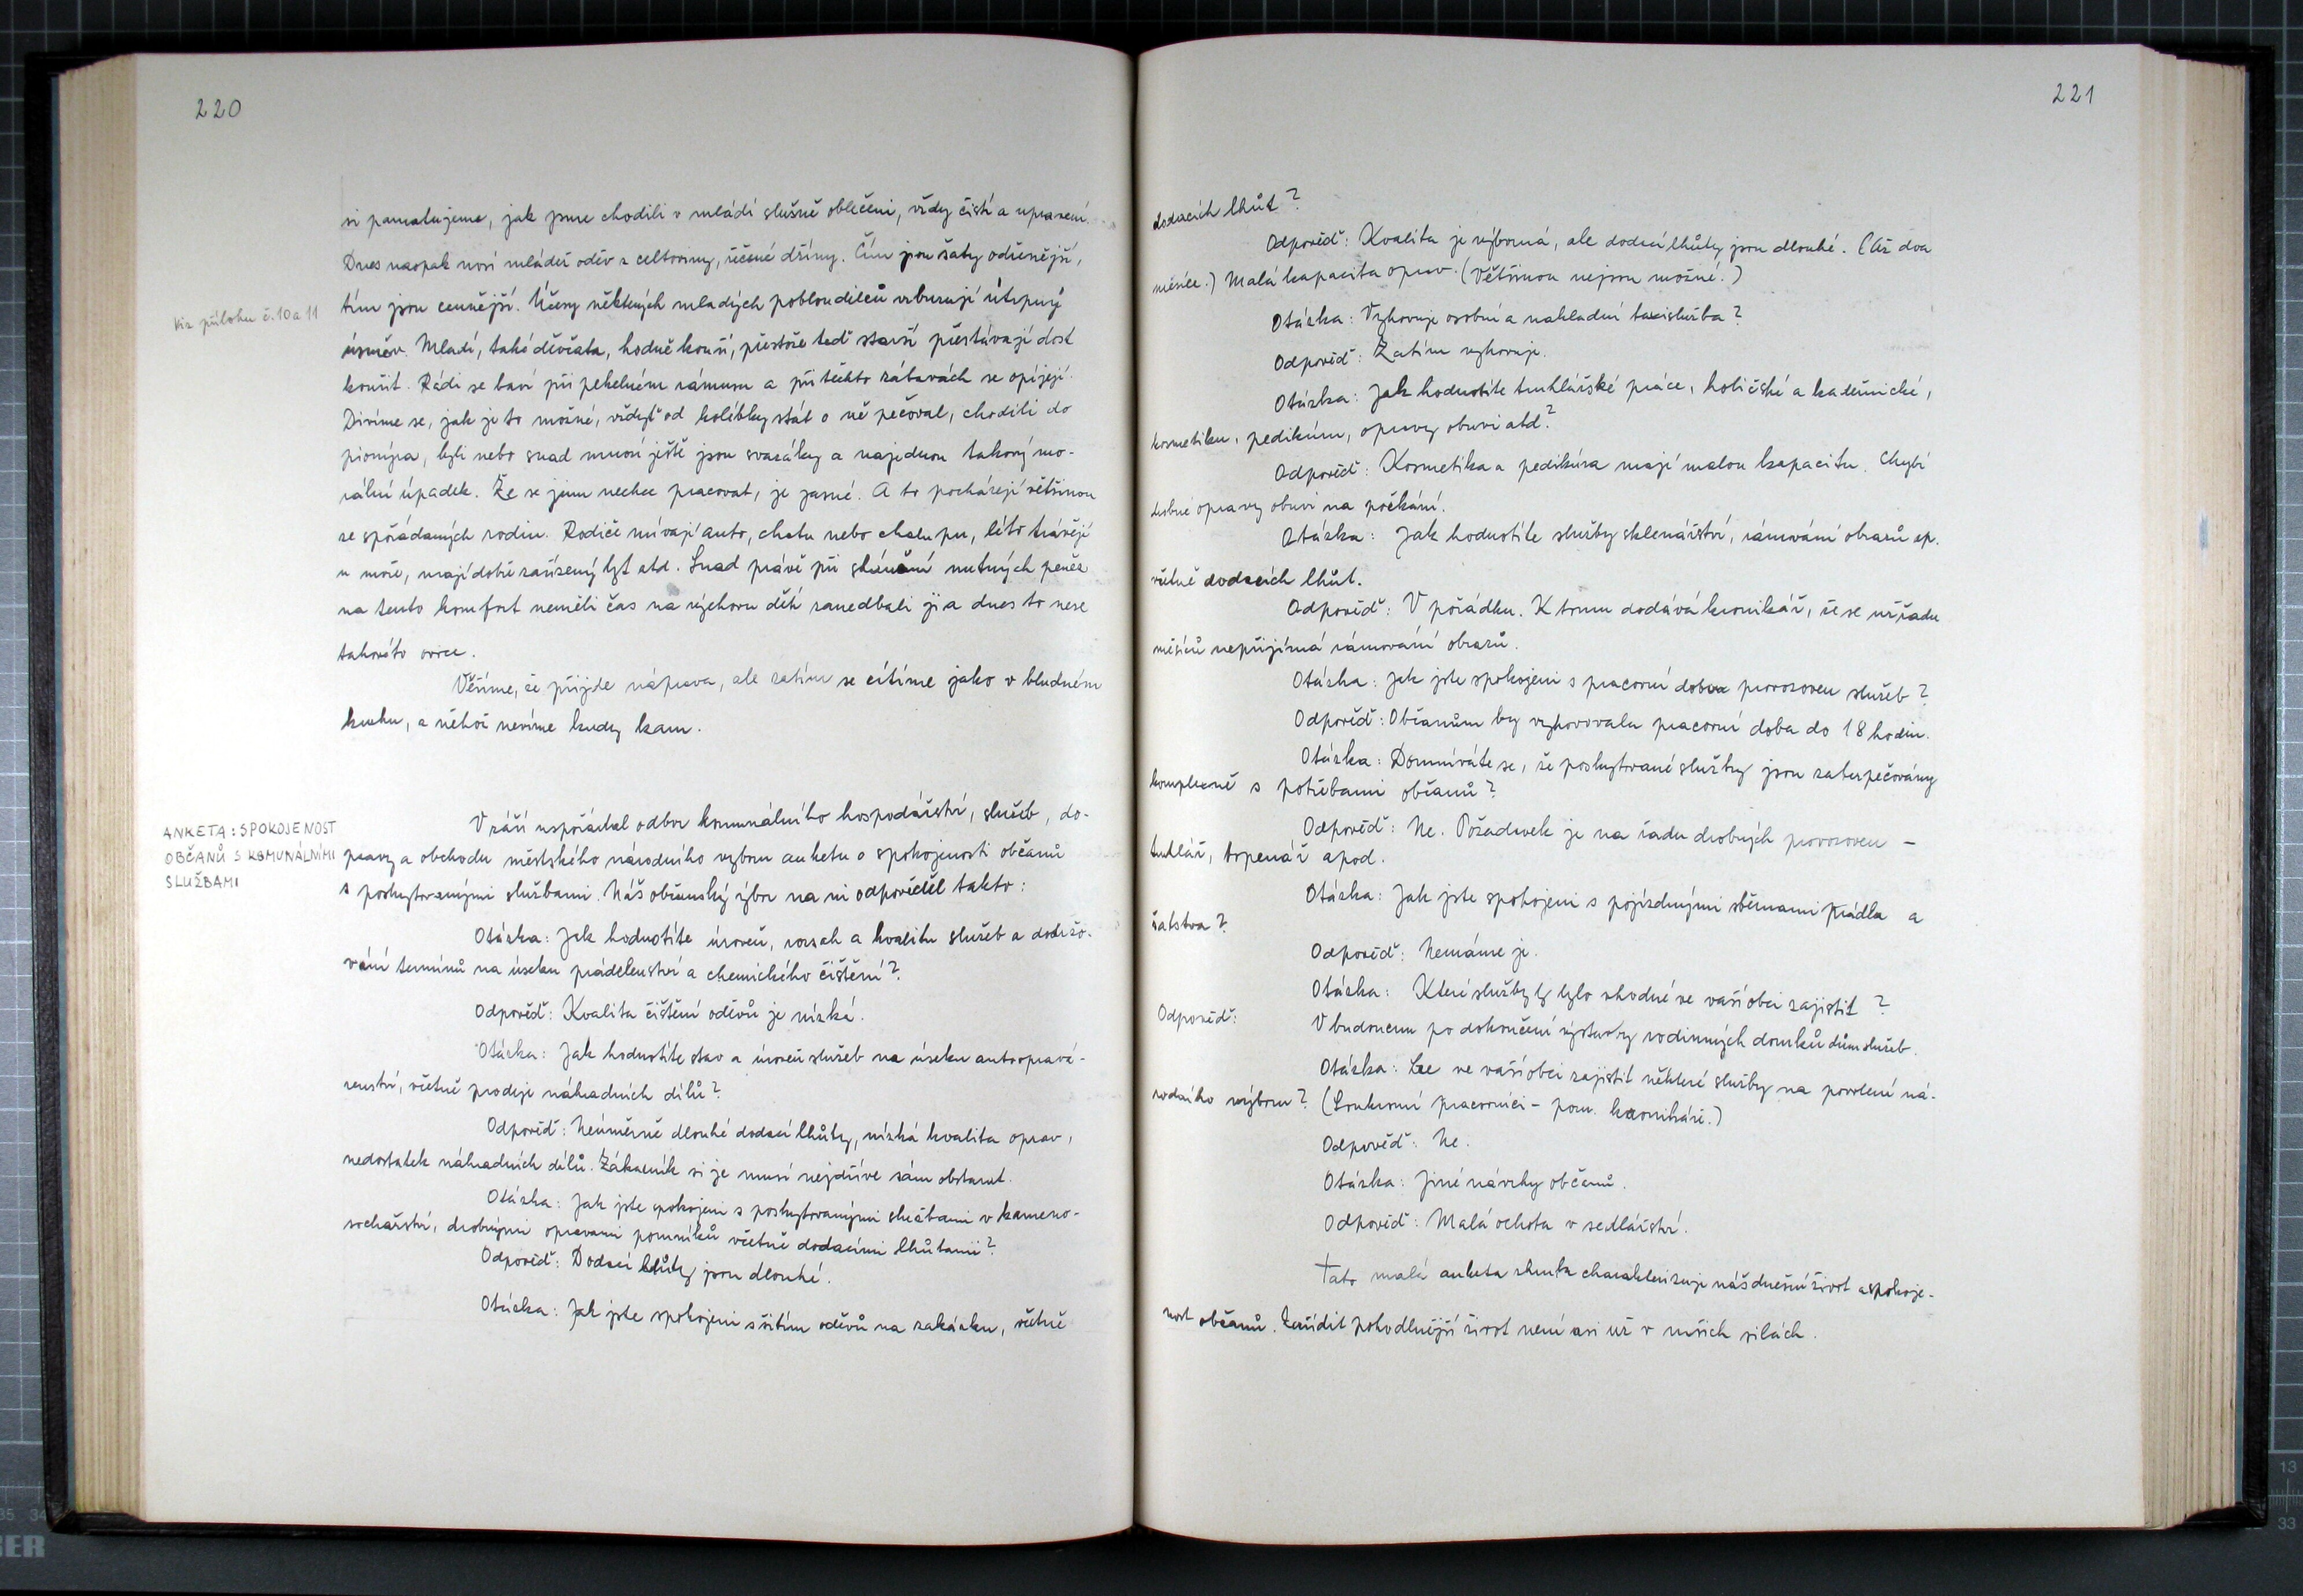 220
si pamatujeme, jak jsme chodili v mládí slušně oblečeni, vždy čistí a upravení.
Dnes naopak nosí mládež oděv z celtoviny, řečené džíny. Čím jsou šaty odřenější,
Viz přílohu č. 10 a 11
tím jsou cennější. Účesy některých mladých pobloudilců vzbuzují útrpný
úsměv. Mladí, také děvčata, hodně kouří, přestože teď starší přestávají dost
kouřit. Rádi se baví při pekelném rámusu a při těchto zábavách se opíjejí.
Divíme se, jak je to možné, vždyť od kolébky stát o ně pečoval, chodili do
pionýra, byli nebo snad mnozí ještě jsou svazáky a najednou takový mo-
rální úpadek. Že se jim nechce pracovat, je jasné. A to pocházejí většinou
ze spořádaných rodin. Rodiče mívají auto, chatu nebo chalupu, léto tráví
u moře, mají dobře zařízený byt atd. Snad právě při shánění nutných peněz
na tento komfort neměli čas na výchovu dětí zanedbali ji a dnes to nese
takovéto ovoce.
Věříme, že přijde náprava, ale zatím se cítíme jako v bludném
kruhu, z něhož nevíme kudy kam.
ANKETA: SPOKOJENOST
OBČANŮ S KOMUNÁLNÍMI
SLUŽBAMI
V září uspořádal odbor komunálního hospodářství, služeb, do-
pravy a obchodu městského národního výboru anketu o spokojenosti občanů
s poskytovanými službami. Náš občanský výbor na ni odpověděl takto:
Otázka: Jak hodnotíte úroveň, rozsah a kvalitu služeb a dodržo-
vání termínů na úseku prádelenství a chemického čištění?
Odpověď: Kvalita čištění oděvů je nízká.
Otázka: Jak hodnotíte stav a úroveň služeb na úseku autoopravá-
renství, včetně prodeje náhradních dílů?
Odpověď: Neúměrně dlouhé dodací lhůty, nízká kvalita oprav,
nedostatek náhradních dílů. Zákazník si je musí nejdříve sám obstarat.
Otázka: Jak jste spokojeni s poskytovanými službami v kameno-
sochařství, drobnými opravami pomníků včetně dodacími lhůtami?
Odpověď: Dodací lhůty jsou dlouhé.
Otázka: Jak jste spokojeni s šitím oděvů na zakázku, včetně
221
dodacích lhůt?
Odpověď: Kvalita je výborná, ale dodací lhůty jsou dlouhé. (Až dva
měsíce.) Malá kapacita oprav. (Většinou nejsou možné.)
Otázka: Vyhovuje osobní a nákladní taxislužba?
Odpověď: Zatím vyhovuje.
Otázka: Jak hodnotíte truhlářské práce, holičské a kadeřnické,
kosmetiku, pedikúru, opravy obuvi atd?
Odpověď: Kosmetika a pedikúra mají malou kapacitu. Chybí
drobné opravy obuvi na počkání.
Otázka: Jak hodnotíte služby sklenářství, rámování obrazů ap.
včetně dodacích lhůt.
Odpověď: V pořádku. K tomu dodává kronikář, že se už řadu
měsíců nepřijímá rámování obrazů.
Otázka: Jak jste spokojeni s pracovní dobou provozoven služeb?
Odpověď: Občanům by vyhovovala pracovní doba do 18 hodin.
Otázka: Domníváte se, že poskytované služby jsou zabezpečovány
komplexně s potřebami občanů?
Odpověď: Ne. Požadavek je na řadu drobných provozoven –
truhlář, topenář apod.
Otázka: Jak jste spokojeni s pojízdnými sběrnami prádla a
šatstva?
Odpověď: Nemáme je.
Otázka: Které služby by bylo vhodné ve vaší obci zajistit?
Odpověď: V budoucnu po dokončení výstavby rodinných domků dům služeb.
Otázka: Lze ve vaší obci zajistit některé služby na povolení ná-
rodního výboru? (Soukromí pracovníci – pozn. kronikáře.)
Odpověď: Ne.
Otázka: Jiné návrhy občanů.
Odpověď: Malá ochota v sedlářství.
Tato malá anketa zhruba charakterizuje náš dnešní život a spokoje-
nost občanů. Zařídit pohodlnější život není asi už v našich silách.